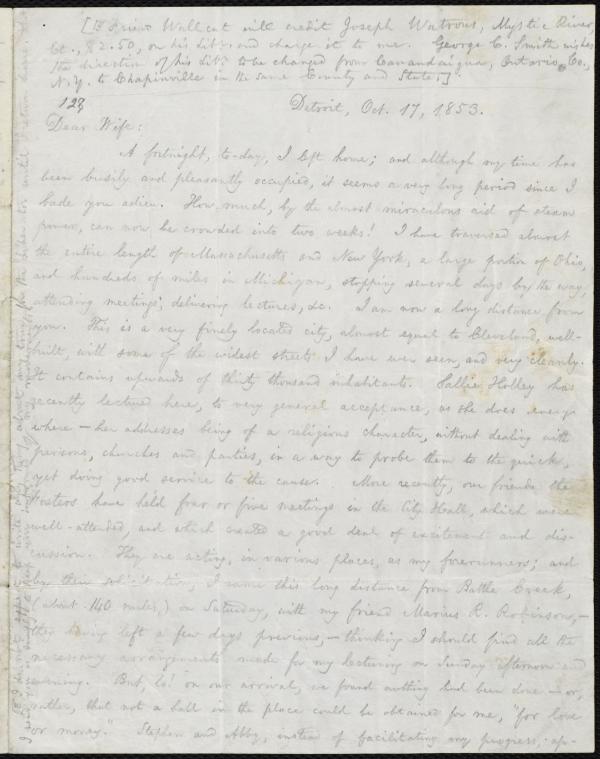 [Friend Wallcut will credit Joseph Watrous, Mystic River,
Ct., $2.50, on his Lib., and charge it to me. George C. Smith wishes
the direction of his Lib. to be changed from Canandaigua, Ontario Co.,
N.Y. to Chapinville in the same County and State.]
128
Detroit, Oct. 17, 1853.
Dear Wife:
A fortnight, to-day, I left home; and although my time has
been busily and pleasantly occupied, it seems a very long period since I
bade you adieu. How much, by the almost miraculous aid of steam
power, can now be crowded into two weeks! I have traversed almost
the entire length of Massachusetts and New York, a large portion of Ohio,
and hundreds of miles in Michigan, stopping several days by the way,
attending meetings, delivering lectures, &c. I am now a long distance from
you. This is a very finely located city, almost equal to Cleveland, well-
built, with some of the widest streets I have ever seen, and very cleanly.
It contains upwards of thirty thousand inhabitants. Sallie Holley has
recently lectured here, to very general acceptance, as she does every
where — her addresses being of a religious character, without dealing with
persons, churches and parties, in a way to probe them to the quick,
yet doing good service to the cause. More recently, our friends the
Fosters have held four or five meetings in the City Hall, which were
well-attended, and which created a good deal of excitement and dis-
cussion. They are acting, in various places, as my forerunners; and
by their solicitation, I came this long distance from Battle Creek,
(about 140 miles,) on Saturday, with my friend Marius R. Robinson, —
they having left a few days previous, — thinking I should find all the
necessary arrangements made for my lecturing on Sunday afternoon and
evening. But, lo! on our arrival, we found nothing had been done — or,
rather, that not a hall in the place could be obtained for me, "for love
or money." Stephen and Abby, instead of facilitating my progress, ap-